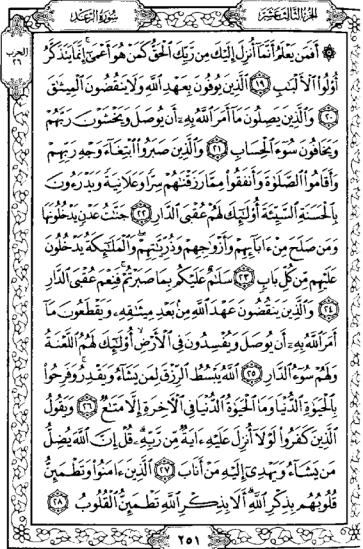 الجزء الثالث عشر
سُورَةُ الرَّعْد
الحزب ٢٦
۞ أَفَمَن يَعْلَمُ أَنَّمَآ أُنزِلَ إِلَيْكَ مِن رَّبِّكَ ٱلْحَقُّ كَمَنْ هُوَ أَعْمَىٰٓ ۚ إِنَّمَا يَتَذَكَّرُ
أُو۟لُوا۟ ٱلْأَلْبَـٰبِ ١٩ ٱلَّذِينَ يُوفُونَ بِعَهْدِ ٱللَّهِ وَلَا يَنقُضُونَ ٱلْمِيثَـٰقَ
٢٠ وَٱلَّذِينَ يَصِلُونَ مَآ أَمَرَ ٱللَّهُ بِهِۦٓ أَن يُوصَلَ وَيَخْشَوْنَ رَبَّهُمْ
وَيَخَافُونَ سُوٓءَ ٱلْحِسَابِ ٢١ وَٱلَّذِينَ صَبَرُوا۟ ٱبْتِغَآءَ وَجْهِ رَبِّهِمْ
وَأَقَامُوا۟ ٱلصَّلَوٰةَ وَأَنفَقُوا۟ مِمَّا رَزَقْنَـٰهُمْ سِرًّا وَعَلَانِيَةً وَيَدْرَءُونَ
بِٱلْحَسَنَةِ ٱلسَّيِّئَةَ أُو۟لَـٰٓئِكَ لَهُمْ عُقْبَى ٱلدَّارِ ٢٢ جَنَّـٰتُ عَدْنٍ يَدْخُلُونَهَا
وَمَن صَلَحَ مِنْ ءَابَآئِهِمْ وَأَزْوَٰجِهِمْ وَذُرِّيَّـٰتِهِمْ ۖ وَٱلْمَلَـٰٓئِكَةُ يَدْخُلُونَ
عَلَيْهِم مِّن كُلِّ بَابٍ ٢٣ سَلَـٰمٌ عَلَيْكُم بِمَا صَبَرْتُمْ ۚ فَنِعْمَ عُقْبَى ٱلدَّارِ
٢٤ وَٱلَّذِينَ يَنقُضُونَ عَهْدَ ٱللَّهِ مِنۢ بَعْدِ مِيثَـٰقِهِۦ وَيَقْطَعُونَ مَآ
أَمَرَ ٱللَّهُ بِهِۦٓ أَن يُوصَلَ وَيُفْسِدُونَ فِى ٱلْأَرْضِ ۙ أُو۟لَـٰٓئِكَ لَهُمُ ٱللَّعْنَةُ
وَلَهُمْ سُوٓءُ ٱلدَّارِ ٢٥ ٱللَّهُ يَبْسُطُ ٱلرِّزْقَ لِمَن يَشَآءُ وَيَقْدِرُ ۚ وَفَرِحُوا۟
بِٱلْحَيَوٰةِ ٱلدُّنْيَا وَمَا ٱلْحَيَوٰةُ ٱلدُّنْيَا فِى ٱلْـَٔاخِرَةِ إِلَّا مَتَـٰعٌ ٢٦ وَيَقُولُ
ٱلَّذِينَ كَفَرُوا۟ لَوْلَآ أُنزِلَ عَلَيْهِ ءَايَةٌ مِّن رَّبِّهِۦ ۗ قُلْ إِنَّ ٱللَّهَ يُضِلُّ
مَن يَشَآءُ وَيَهْدِىٓ إِلَيْهِ مَنْ أَنَابَ ٢٧ ٱلَّذِينَ ءَامَنُوا۟ وَتَطْمَئِنُّ
قُلُوبُهُم بِذِكْرِ ٱللَّهِ ۗ أَلَا بِذِكْرِ ٱللَّهِ تَطْمَئِنُّ ٱلْقُلُوبُ ٢٨
٢٥١